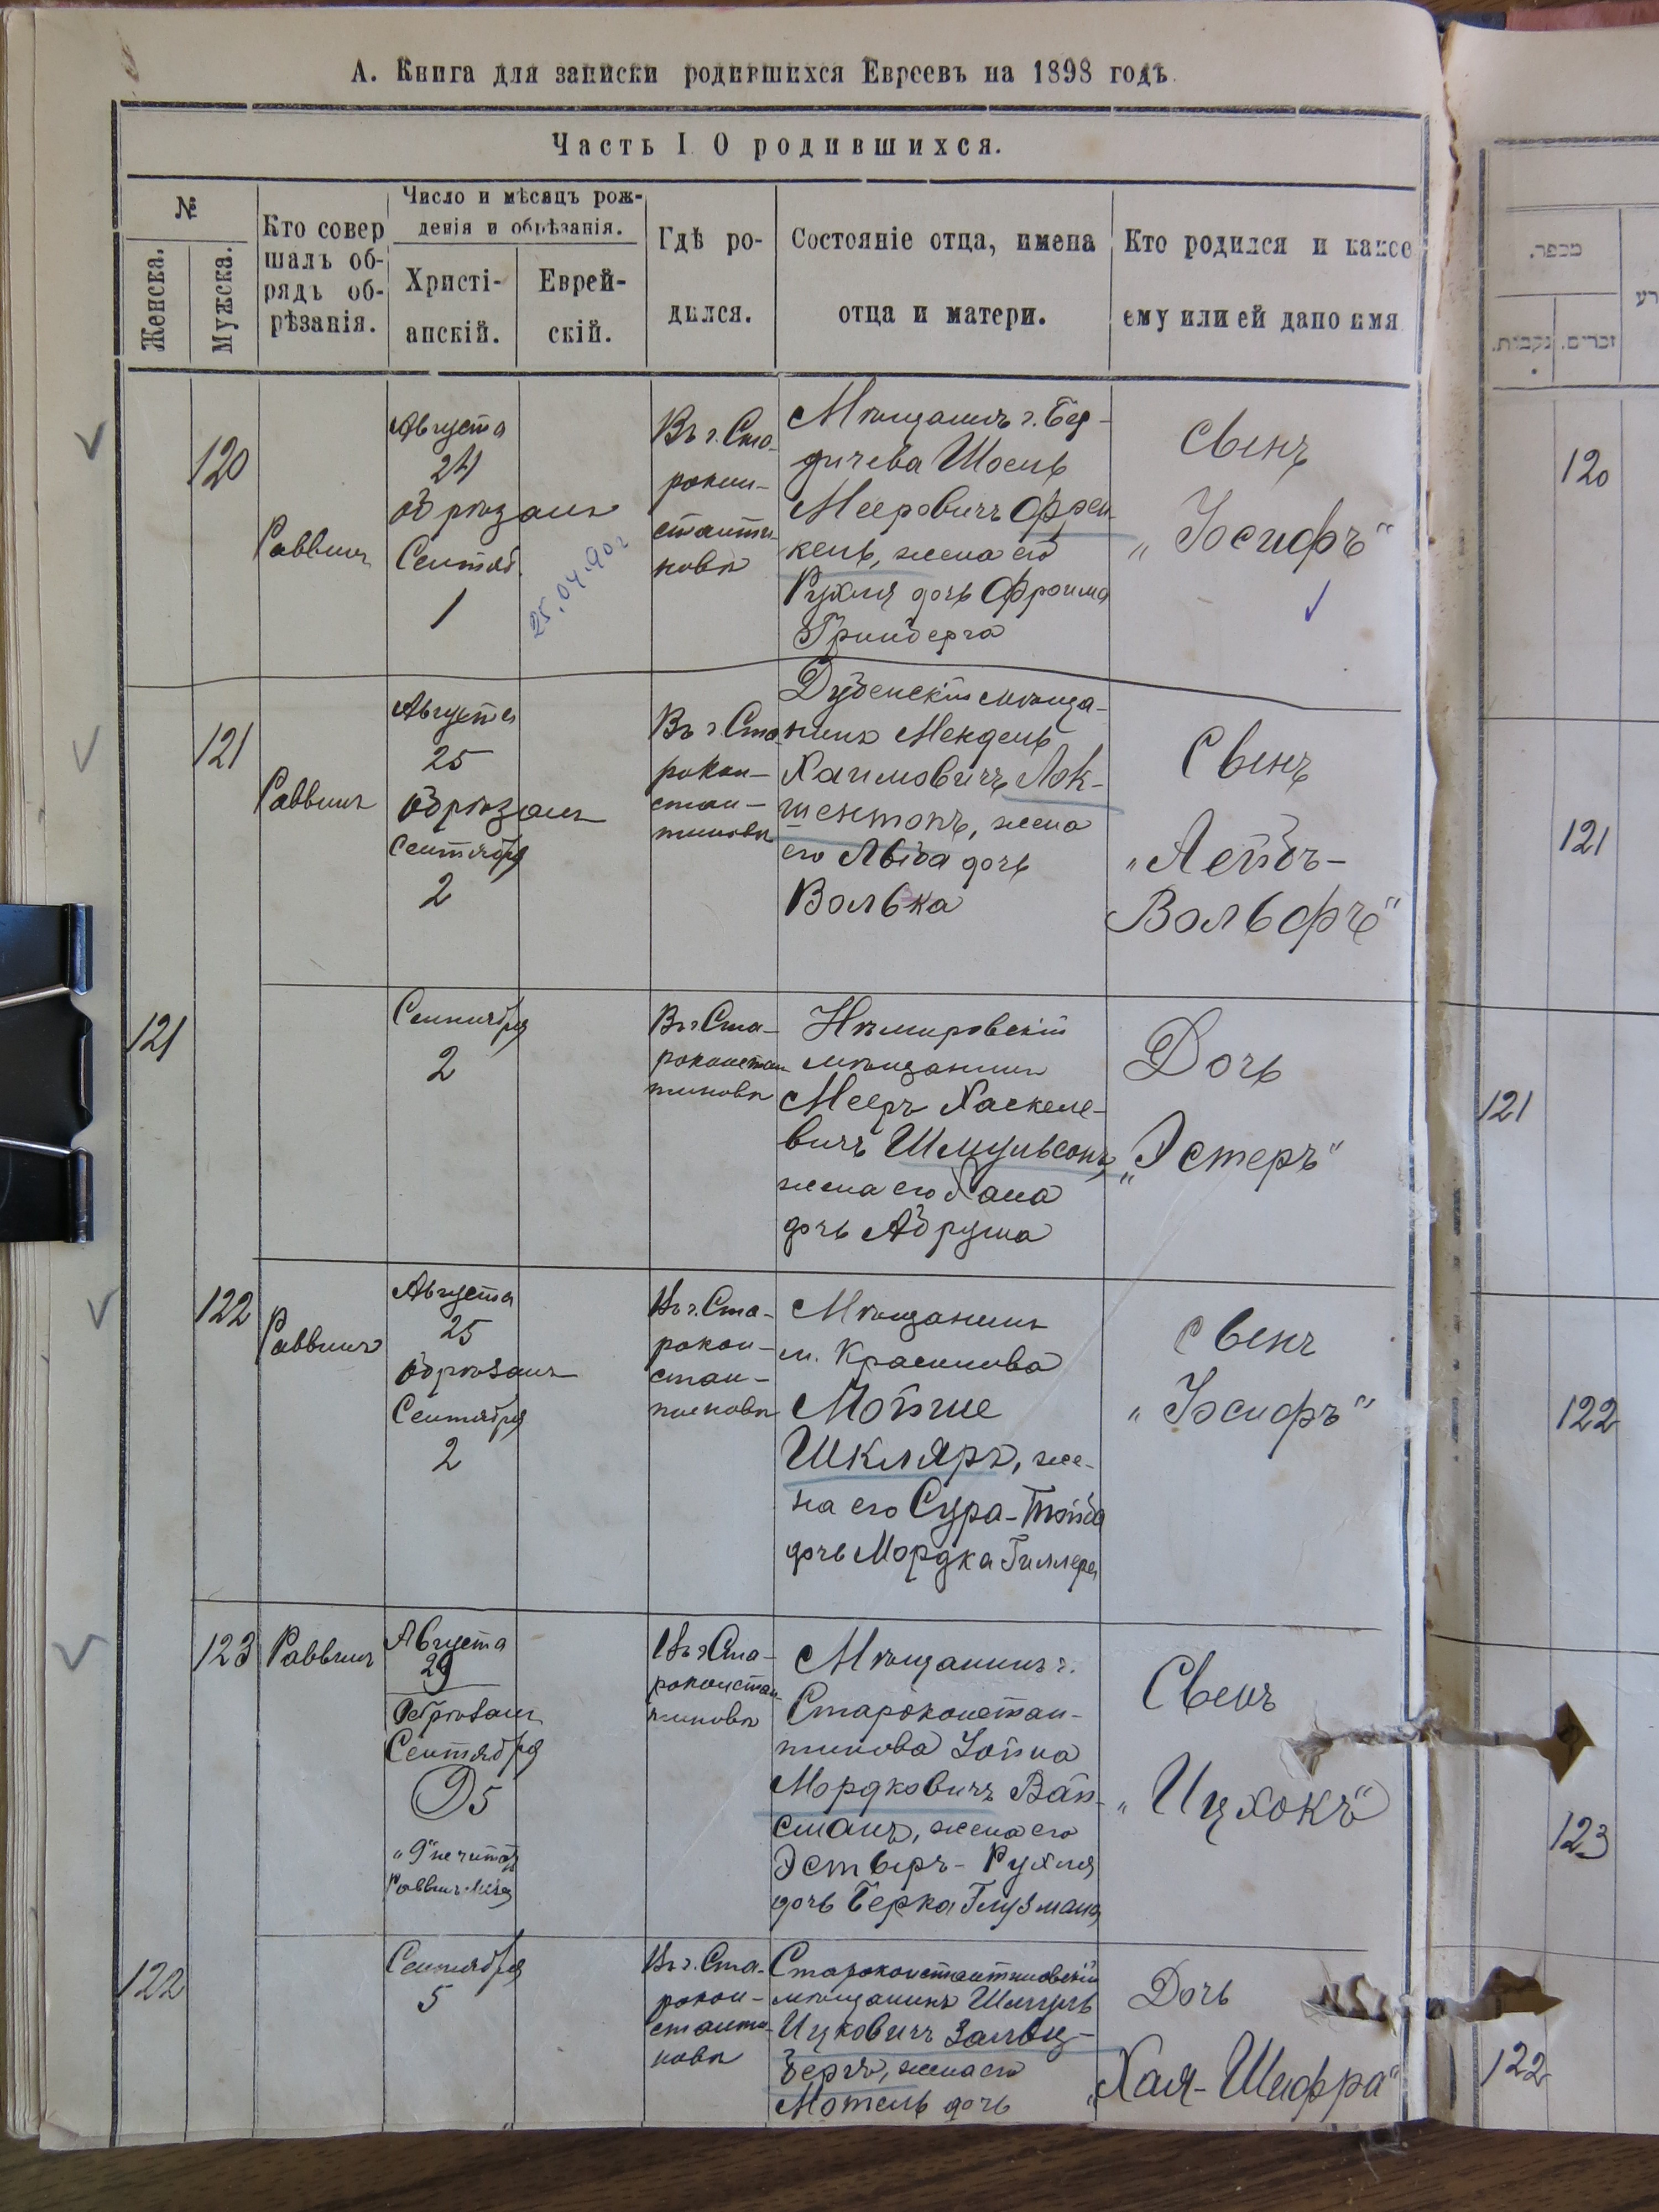 А. Книга для записки родившихся Евреевъ на 1898 годъ.
Часть I О родившихся.
№
Женска.
Мужска.
Кто совер
шалъ об-
рядъ об-
рѣзанія.
Число и мѣсяцъ рож-
денія и обрѣзанія.
Христі-
анскій.
Еврей-
скій.
Гдѣ ро-
дился.
Состояніе отца, имена
отца и матери.
Кто родился и какое
ему или ей дано имя
120
Раввинъ
Августа
24
обрѣзанъ
Сентяб.
1
25.04.90г
Въ г. Ста-
рокон-
станти-
новѣ
Мѣщанинъ г. Бер-
дичева Шоель
Мееровичъ Френ-
кель, жена его
Рухля дочь Фроима
Гринберга
Сынъ
„Іосифъ“
121
Раввинъ
Августа
25
обрѣзанъ
Сентября
2
Въ г. Ста-
рокон-
стан-
тиновѣ
Дубенскій мѣща-
нинъ Мендель
Хаимовичъ Лок-
шентопъ, жена
его Либа дочь
Волька
Сынъ
„Лейбъ-
Вольфъ“
121
Сентября
2
Въ г. Ста-
роконстан
тиновѣ
Немировскій
мѣщанинъ
Мееръ Хаскеле-
вичъ Шмульсонъ,
жена его Хана
дочь Абрума
Дочь
„Эстеръ“
122
Раввинъ
Августа
25
обрѣзанъ
Сентября
2
Въ г. Ста-
рокон-
стан-
тиновѣ
Мѣщанинъ
м. Красилова
Мойше
Шкляръ, же-
на его Сура-Тойба
дочь Мордка Гиллера
Сынъ
„Іосифъ“
123
Раввинъ
Августа
29
Обрѣзанъ
Сентября
95
„9“ не читать
Раввинъ
Въ г. Ста-
роконстан-
тиновѣ
Мѣщанинъ г.
Староконстан-
тинова Зойна
Мордковичъ Вай-
сманъ, жена его
Эстыръ-Рухля
дочь Берка Глузмана
Сынъ
„Ицхокъ“
122
Сентября
5
Въ г. Ста-
рокон-
станти-
новѣ
Староконстантиновскій
мѣщанинъ Шмуль
Ицковичъ Зальц-
бергъ, жена его
Мотель дочь
Дочь
„Хая-Шифра“
מספר.
נקבות.
זכרים.
120
121
121
122
123
122